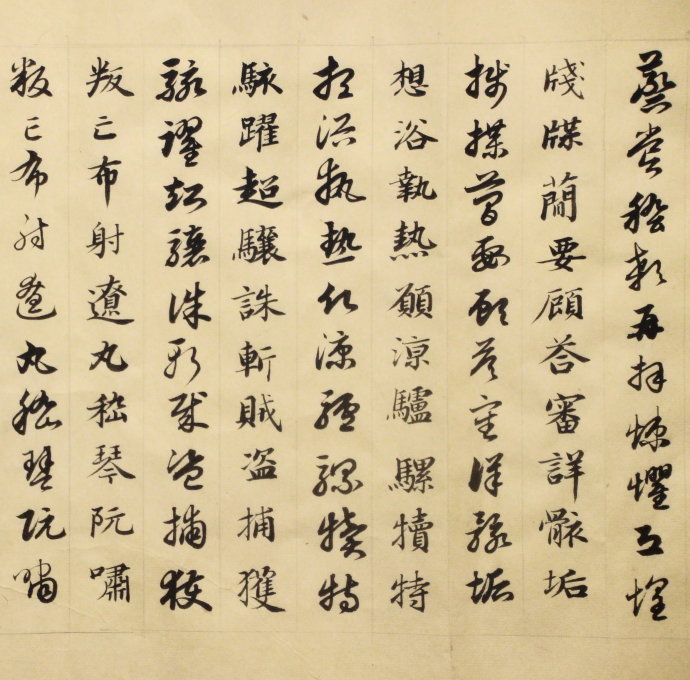 蒸嘗稽顙再拜悚懼恐惶
牋牒簡要顧答審詳骸垢
牋牒簡要顧答審詳骸垢
想浴執熱願涼驢騾犢特
想浴執熱願涼驢騾犢特
駭躍超驤誅斬賊盗捕獲
駭躍超驤誅斬賊盗捕獲
叛亡布射遼丸嵇琴阮嘯
叛亡布射遼丸嵇琴阮嘯